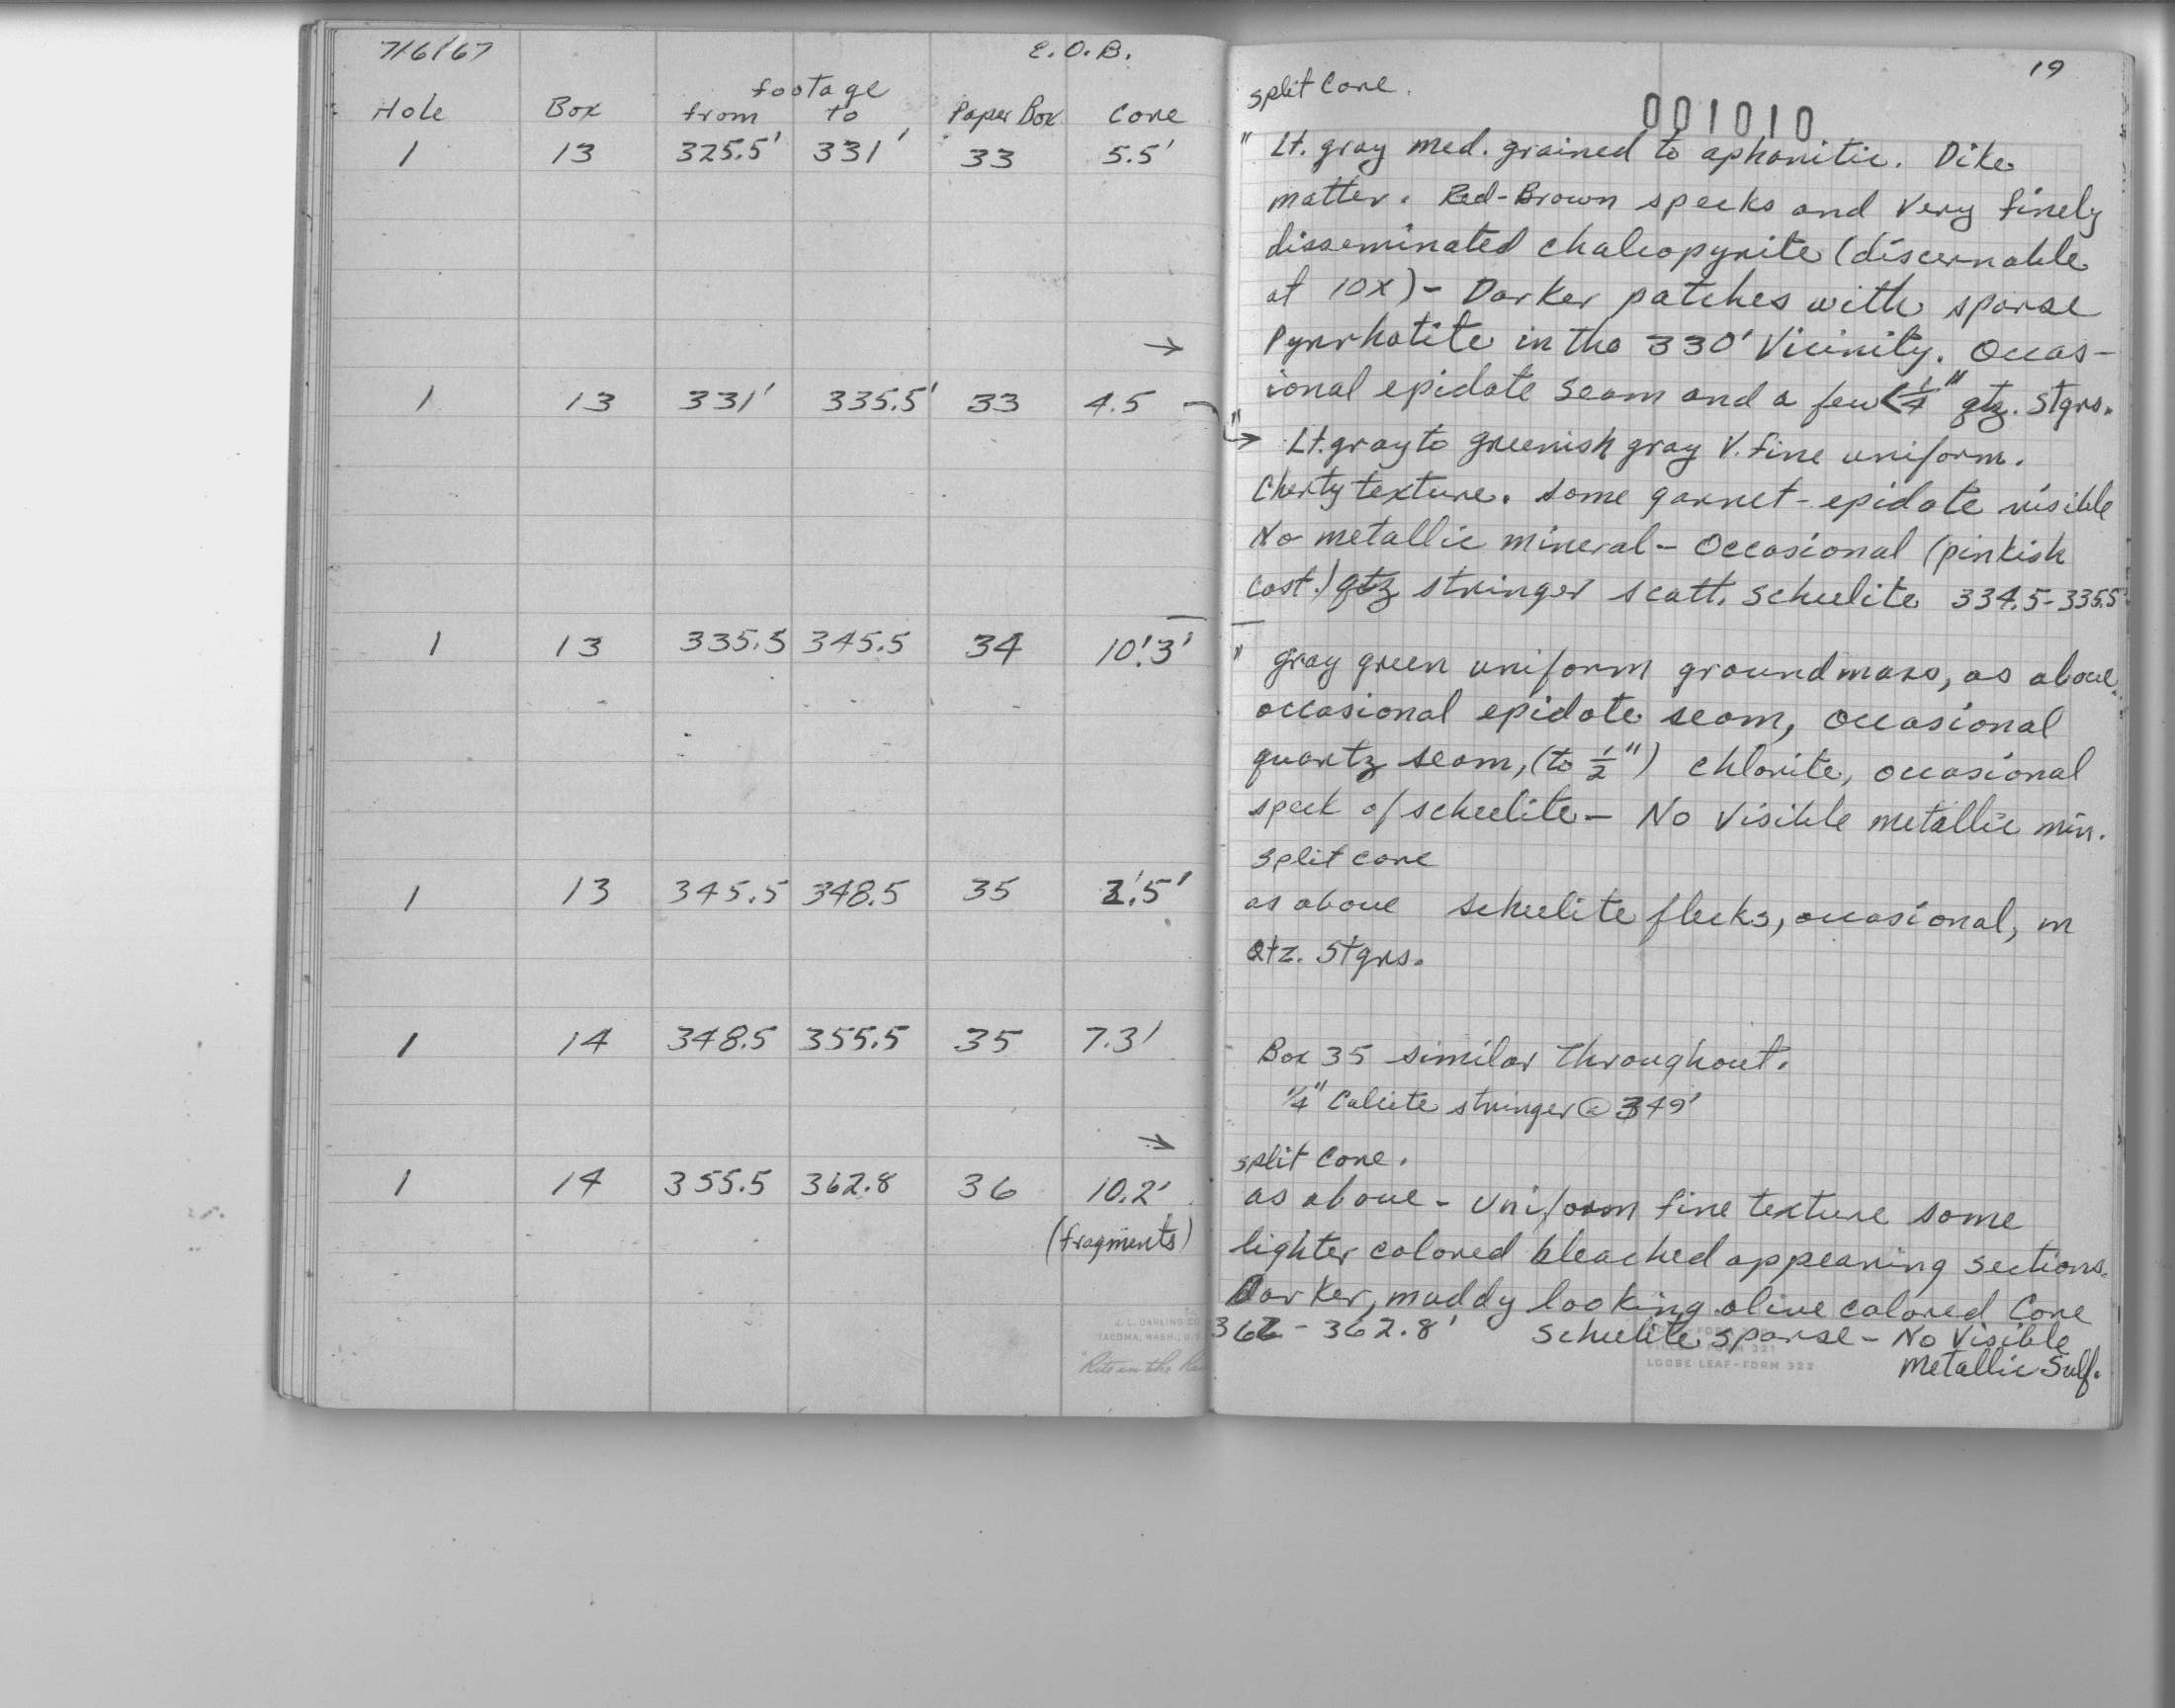 7/6/67 E.O.B.
footage
Hole Box from to Paper Box Core
1 13 325.5' 331' 33 5.5'
→
1 13 331' 335.5' 33 4.5
1 13 335.5 345.5 34 10.3'
1 13 345.5 348.5 35 2.5'
1 14 348.5 355.5 35 7.3'
→
1 14 355.5 362.8 36 10.2'
(fragments)
J. L. DARLING CO
TACOMA, WASH., U.S.
"Rite in the Rain
19
split Core.
001010
" Lt. gray med. grained to aphanitic. Dike
matter. Red-Brown specks and Very finely
disseminated chalcopyrite (discernable
at 10X) - Darker patches with sparse
Pyrrhotite in the 330' Vicinity. Occas-
ional epidote seam and a few <1/4" qtz. stgrs.
" → Lt. gray to greenish gray V. fine uniform.
Cherty texture. Some garnet-epidote visible
No metallic mineral - Occasional (pinkish
cast) qtz stringer scatt. scheelite 334.5-335.5
" gray green uniform groundmass, as above,
occasional epidote seam, occasional
quartz seam, (to 1/2") chlorite, occasional
speck of scheelite - No Visible metallic min.
split core
as above scheelite flecks, occasional, in
Qtz. Stgrs.
Box 35 similar throughout.
1/4" Calcite stringer @ 349'
split Core.
as above - Uniform fine texture some
lighter colored bleached appearing sections.
Darker, muddy looking olive colored Core
362 - 362.8' Scheelite sparse - No Visible
Metallic Sulf.
LOOSE LEAF-FORM 322